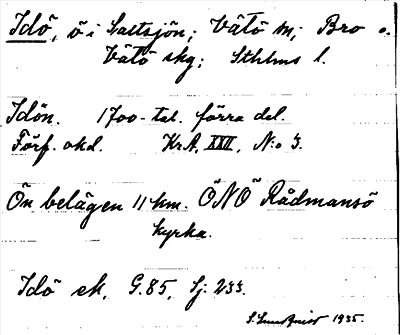 Idö, ö i Saltsjön; Vätö sn; Bro o.
Vätö skg; Sthlms l.
Idön. 1700-tal. förra del.
Förf. okd. Kr.A. XXII, N:o 3.
Ön belägen 11 km. ÖNÖ Rådmansö
kyrka.
Idö ek. G.85, Sj: 233.
1935.